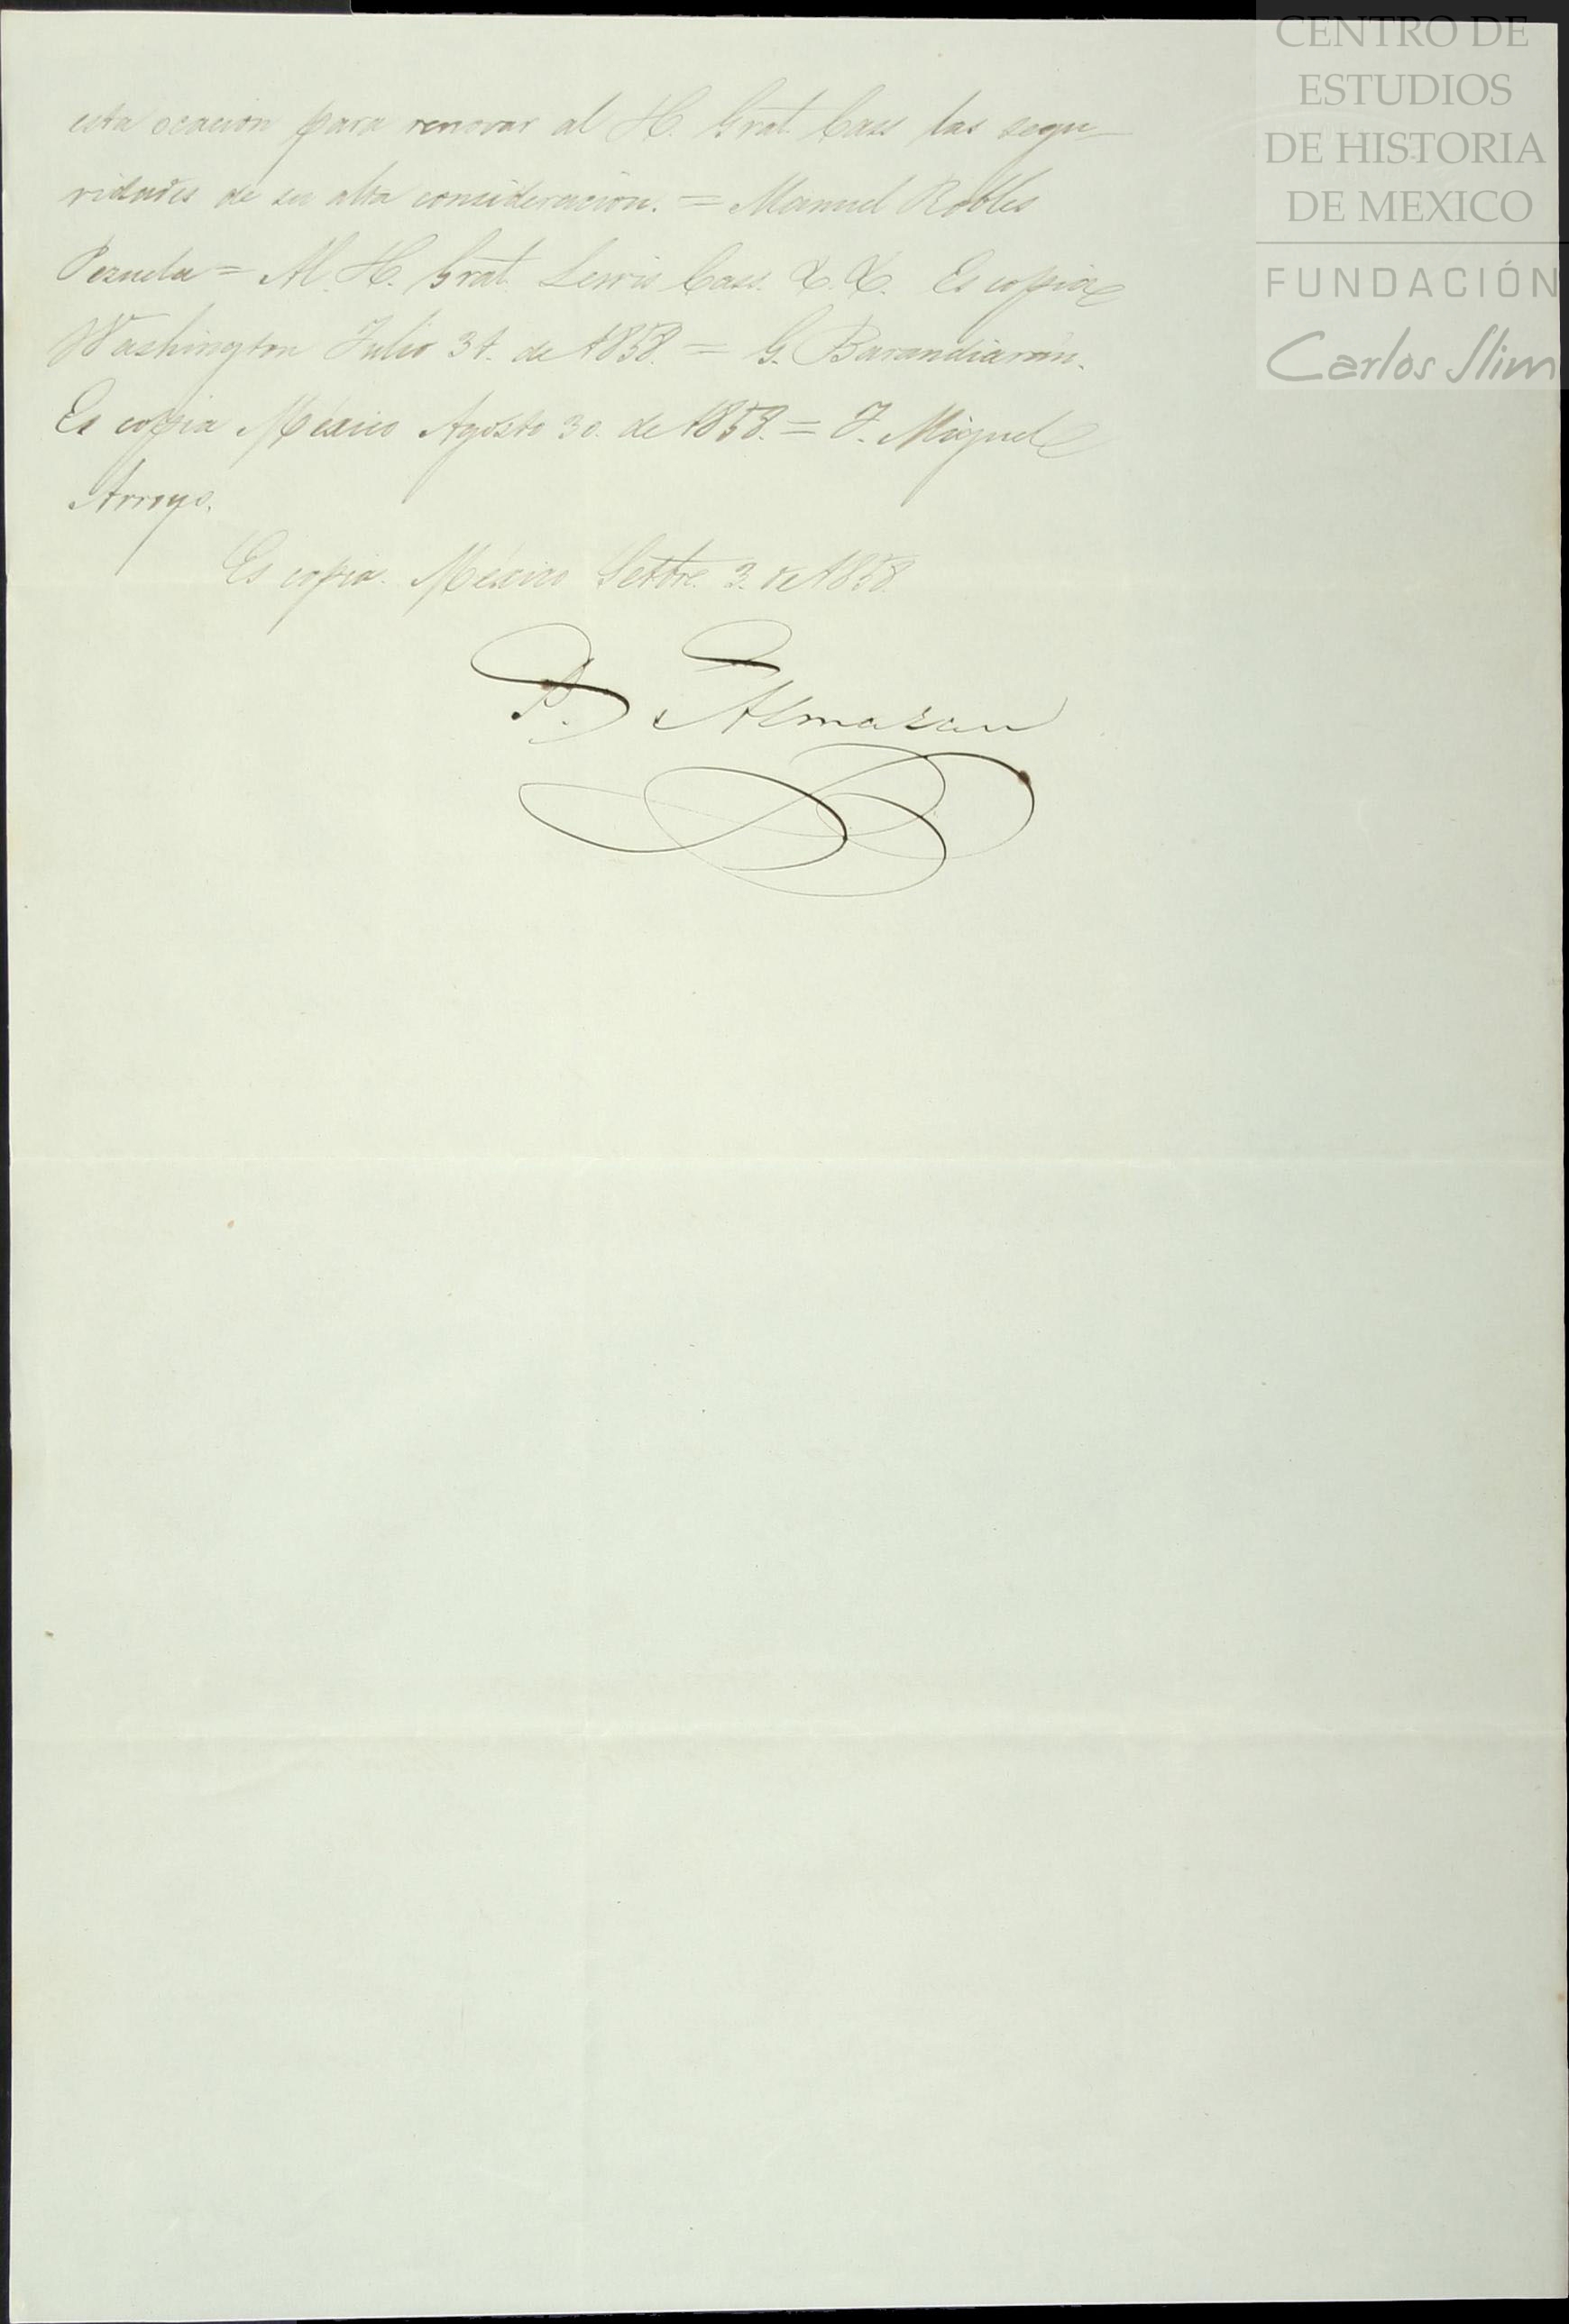 esta ocacion para renovar al H. Gral. Cass las segu-
ridades de su alta consideracion. = Manuel Robles
Pezuela = Al H. Gral. Lewis Cass. &. &. Es copia
Washington Julio 31. de 1858. = G. Barandiarán.
Es copia México Agosto 30. de 1858. = J. Miguel
Arroyo.
Es copia. México Setbre. 3. de 1858.
Almazan
CENTRO DE
ESTUDIOS
DE HISTORIA
DE MEXICO
FUNDACIÓN
Carlos Slim